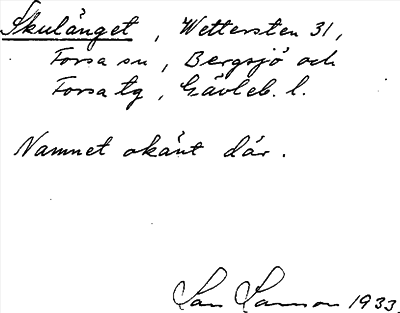 Skulänget, Wettersten 31,
Forsa sn, Bergsjö och
Forsa tg, Gävleb. l.
Namnet okänt där.
1933.